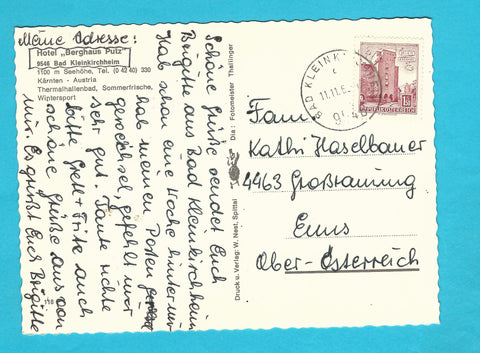 Meine Adresse:
Hotel „Berghaus Putz"
9546 Bad Kleinkirchheim
1100 m Seehöhe, Tel. (0 42 40) 330
Kärnten - Austria
Thermalhallenbad, Sommerfrische,
Wintersport
Schöne Grüße sendet Euch
Brigitte aus Bad Kleinkirchheim
Hab schon eine Woche hinter mir
hab meinen Posten
gewechselt, gefällt mir
sehr gut. Tante richte
bitte Gretl + Fritz auch
schöne Grüße aus von
mir. Es grüßt Euch Brigitte
118
Druck u. Verlag: W. Nest, Spittal
Dia: Fotomeister Thallinger
BAD KLEINK
11.11.6
REPUBLIK ÖSTERREICH
Fam.
Kathi Haselbauer
4463 Großraming
Enns
Ober-Österreich